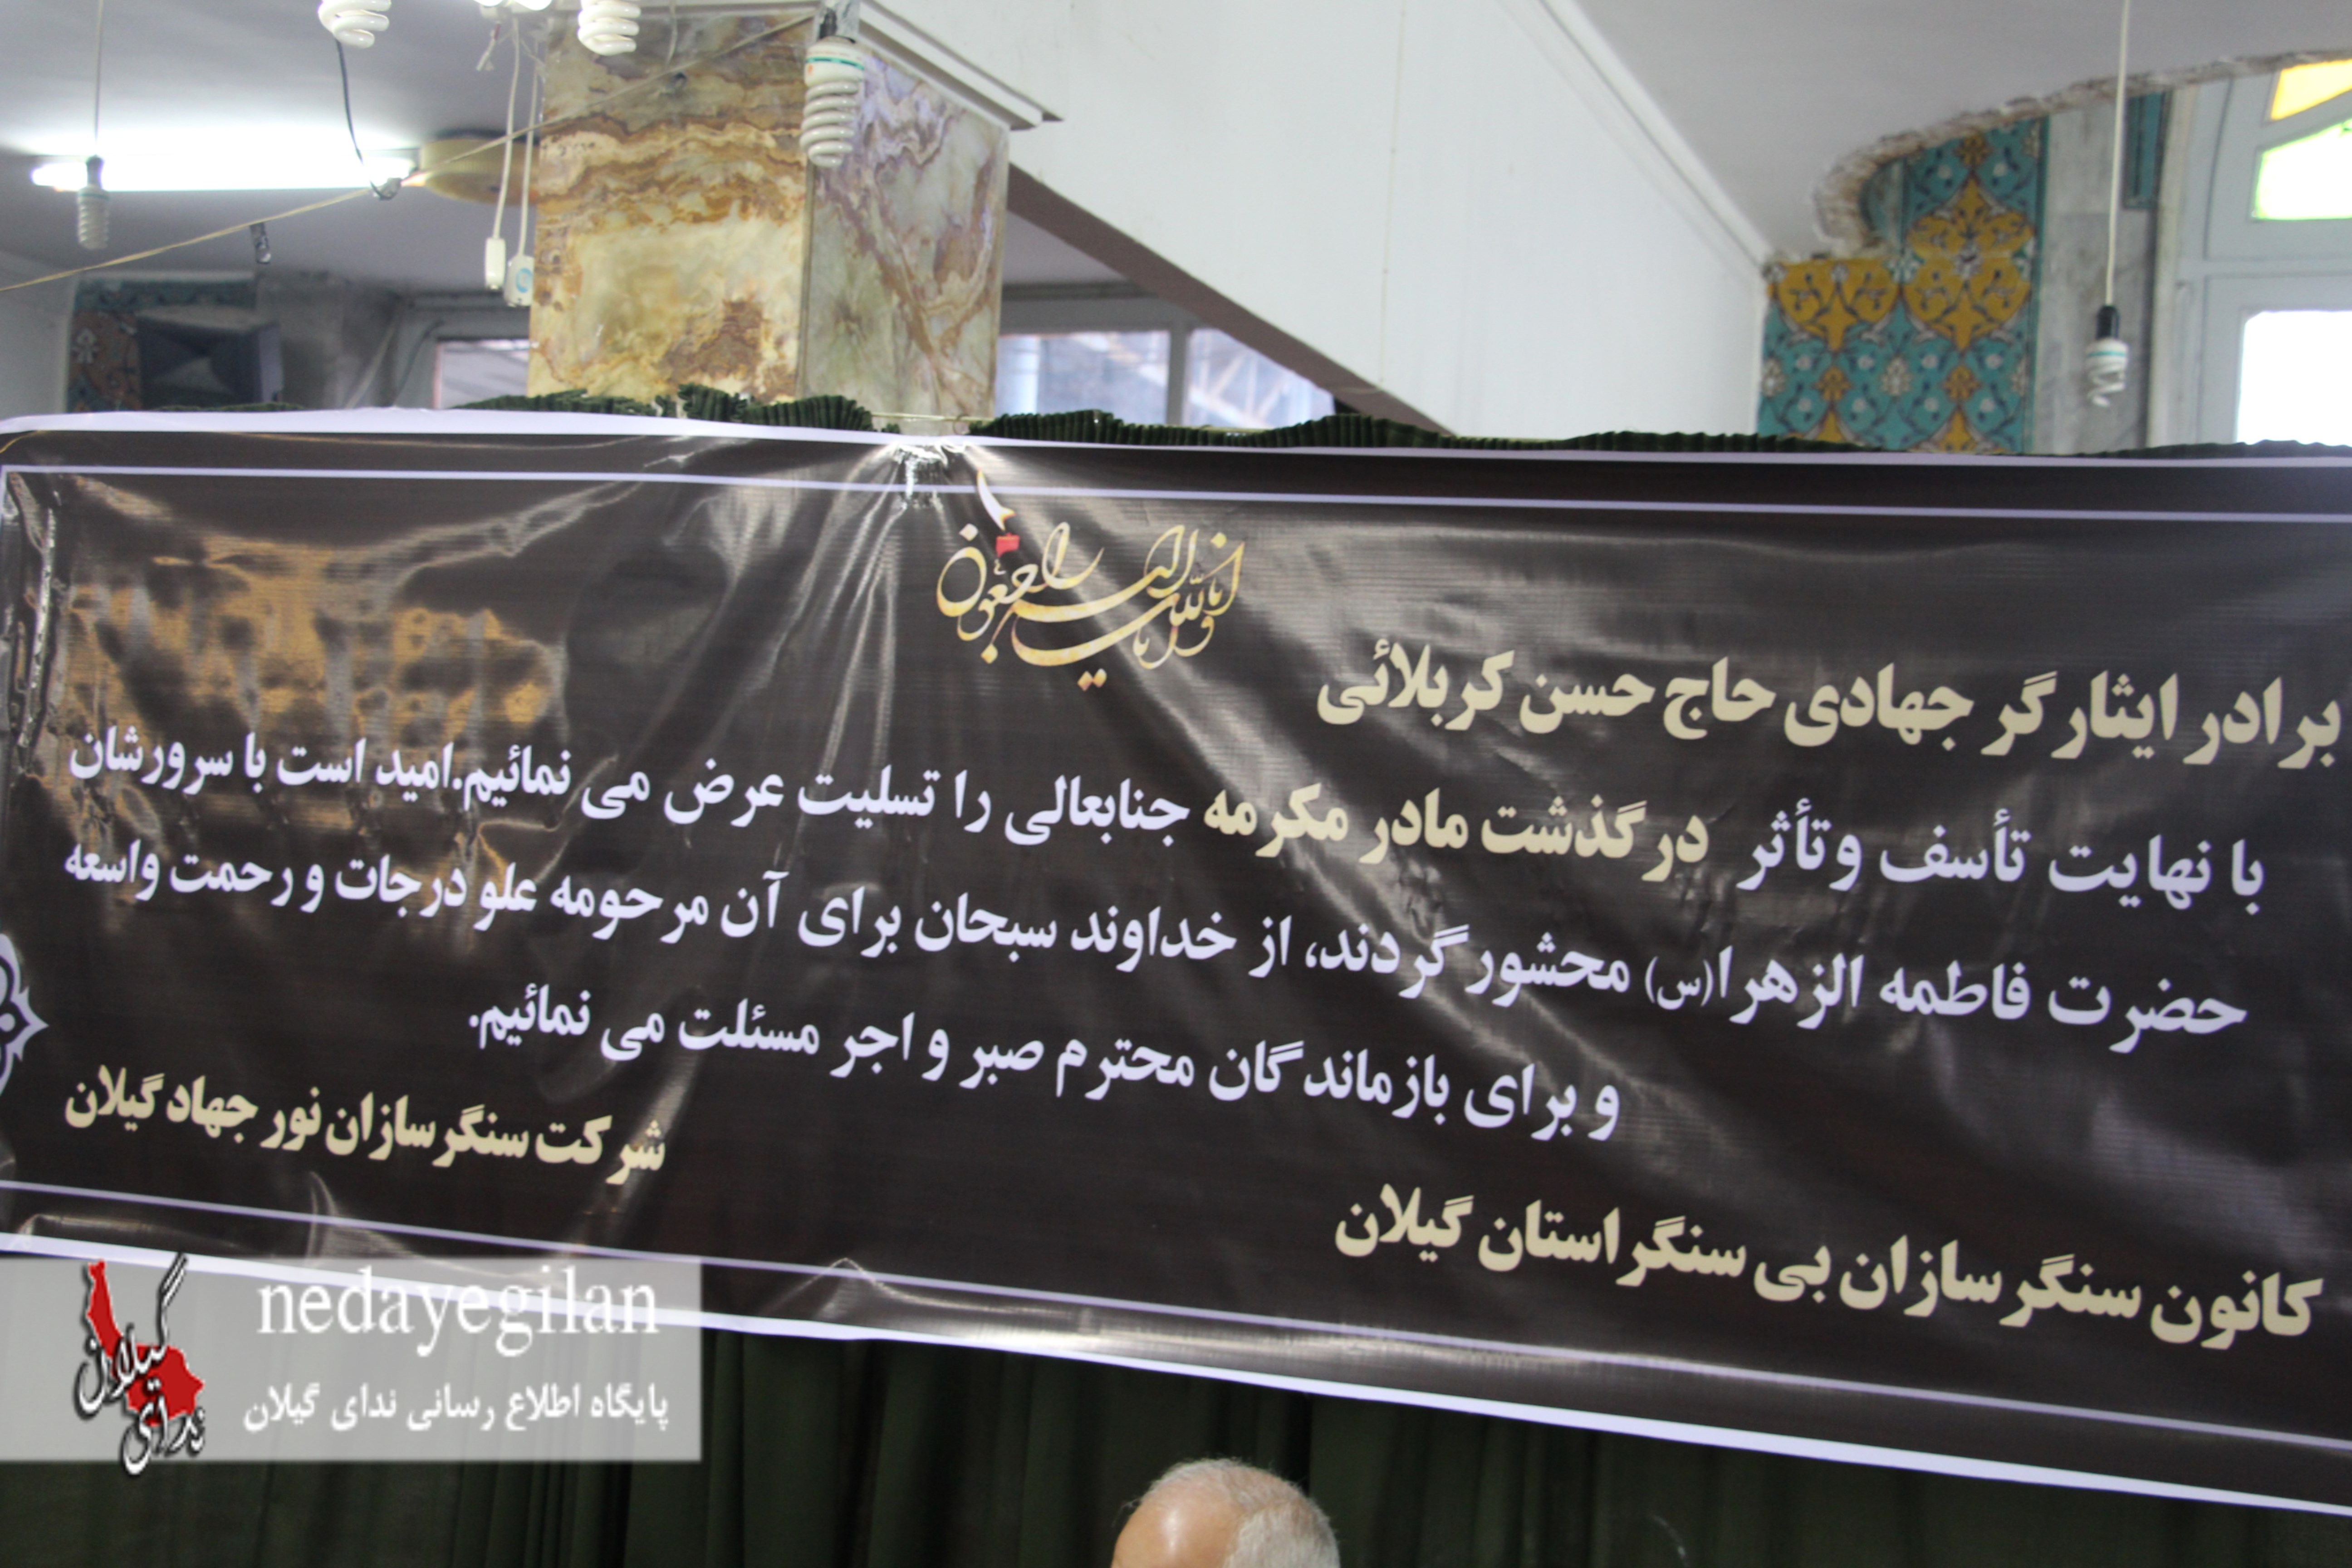 انا لله و انا الیه راجعون
برادر ایثارگر جهادی حاج حسن کربلائی
با نهایت تأسف وتأثر درگذشت مادر مکرمه جنابعالی را تسلیت عرض می نمائیم.امید است با سرورشان
حضرت فاطمه الزهرا(س) محشور گردند، از خداوند سبحان برای آن مرحومه علو درجات و رحمت واسعه
و برای بازماندگان محترم صبر و اجر مسئلت می نمائیم.
کانون سنگرسازان بی سنگر استان گیلان
شرکت سنگرسازان نور جهاد گیلان
ندای گیلان
nedayegilan
پایگاه اطلاع رسانی ندای گیلان